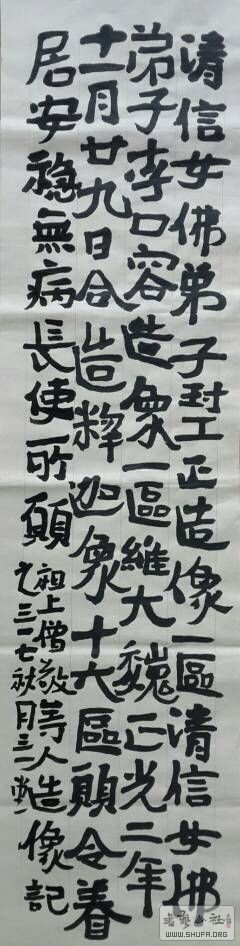 清信女佛弟子正造像一區清信女佛
弟子李口容造象一區維大魏正光二年
十一月廿九日合造釋迦象十六區願令眷
居安穩無病長使所願
祖上僧敬等人造像記
三一七秋月三
書藝公社
WWW.SHUFA.ORG